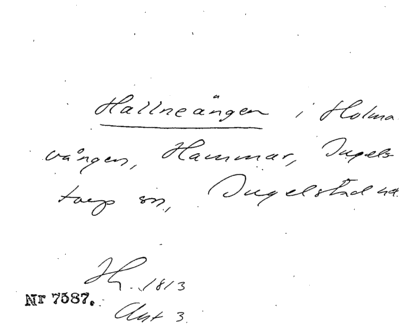 Hallneängen i Holma
vången, Hammar, Ingels-
torp sn, Ingelstad hd.
Hy. 1813
Nr 7587.
Akt 3